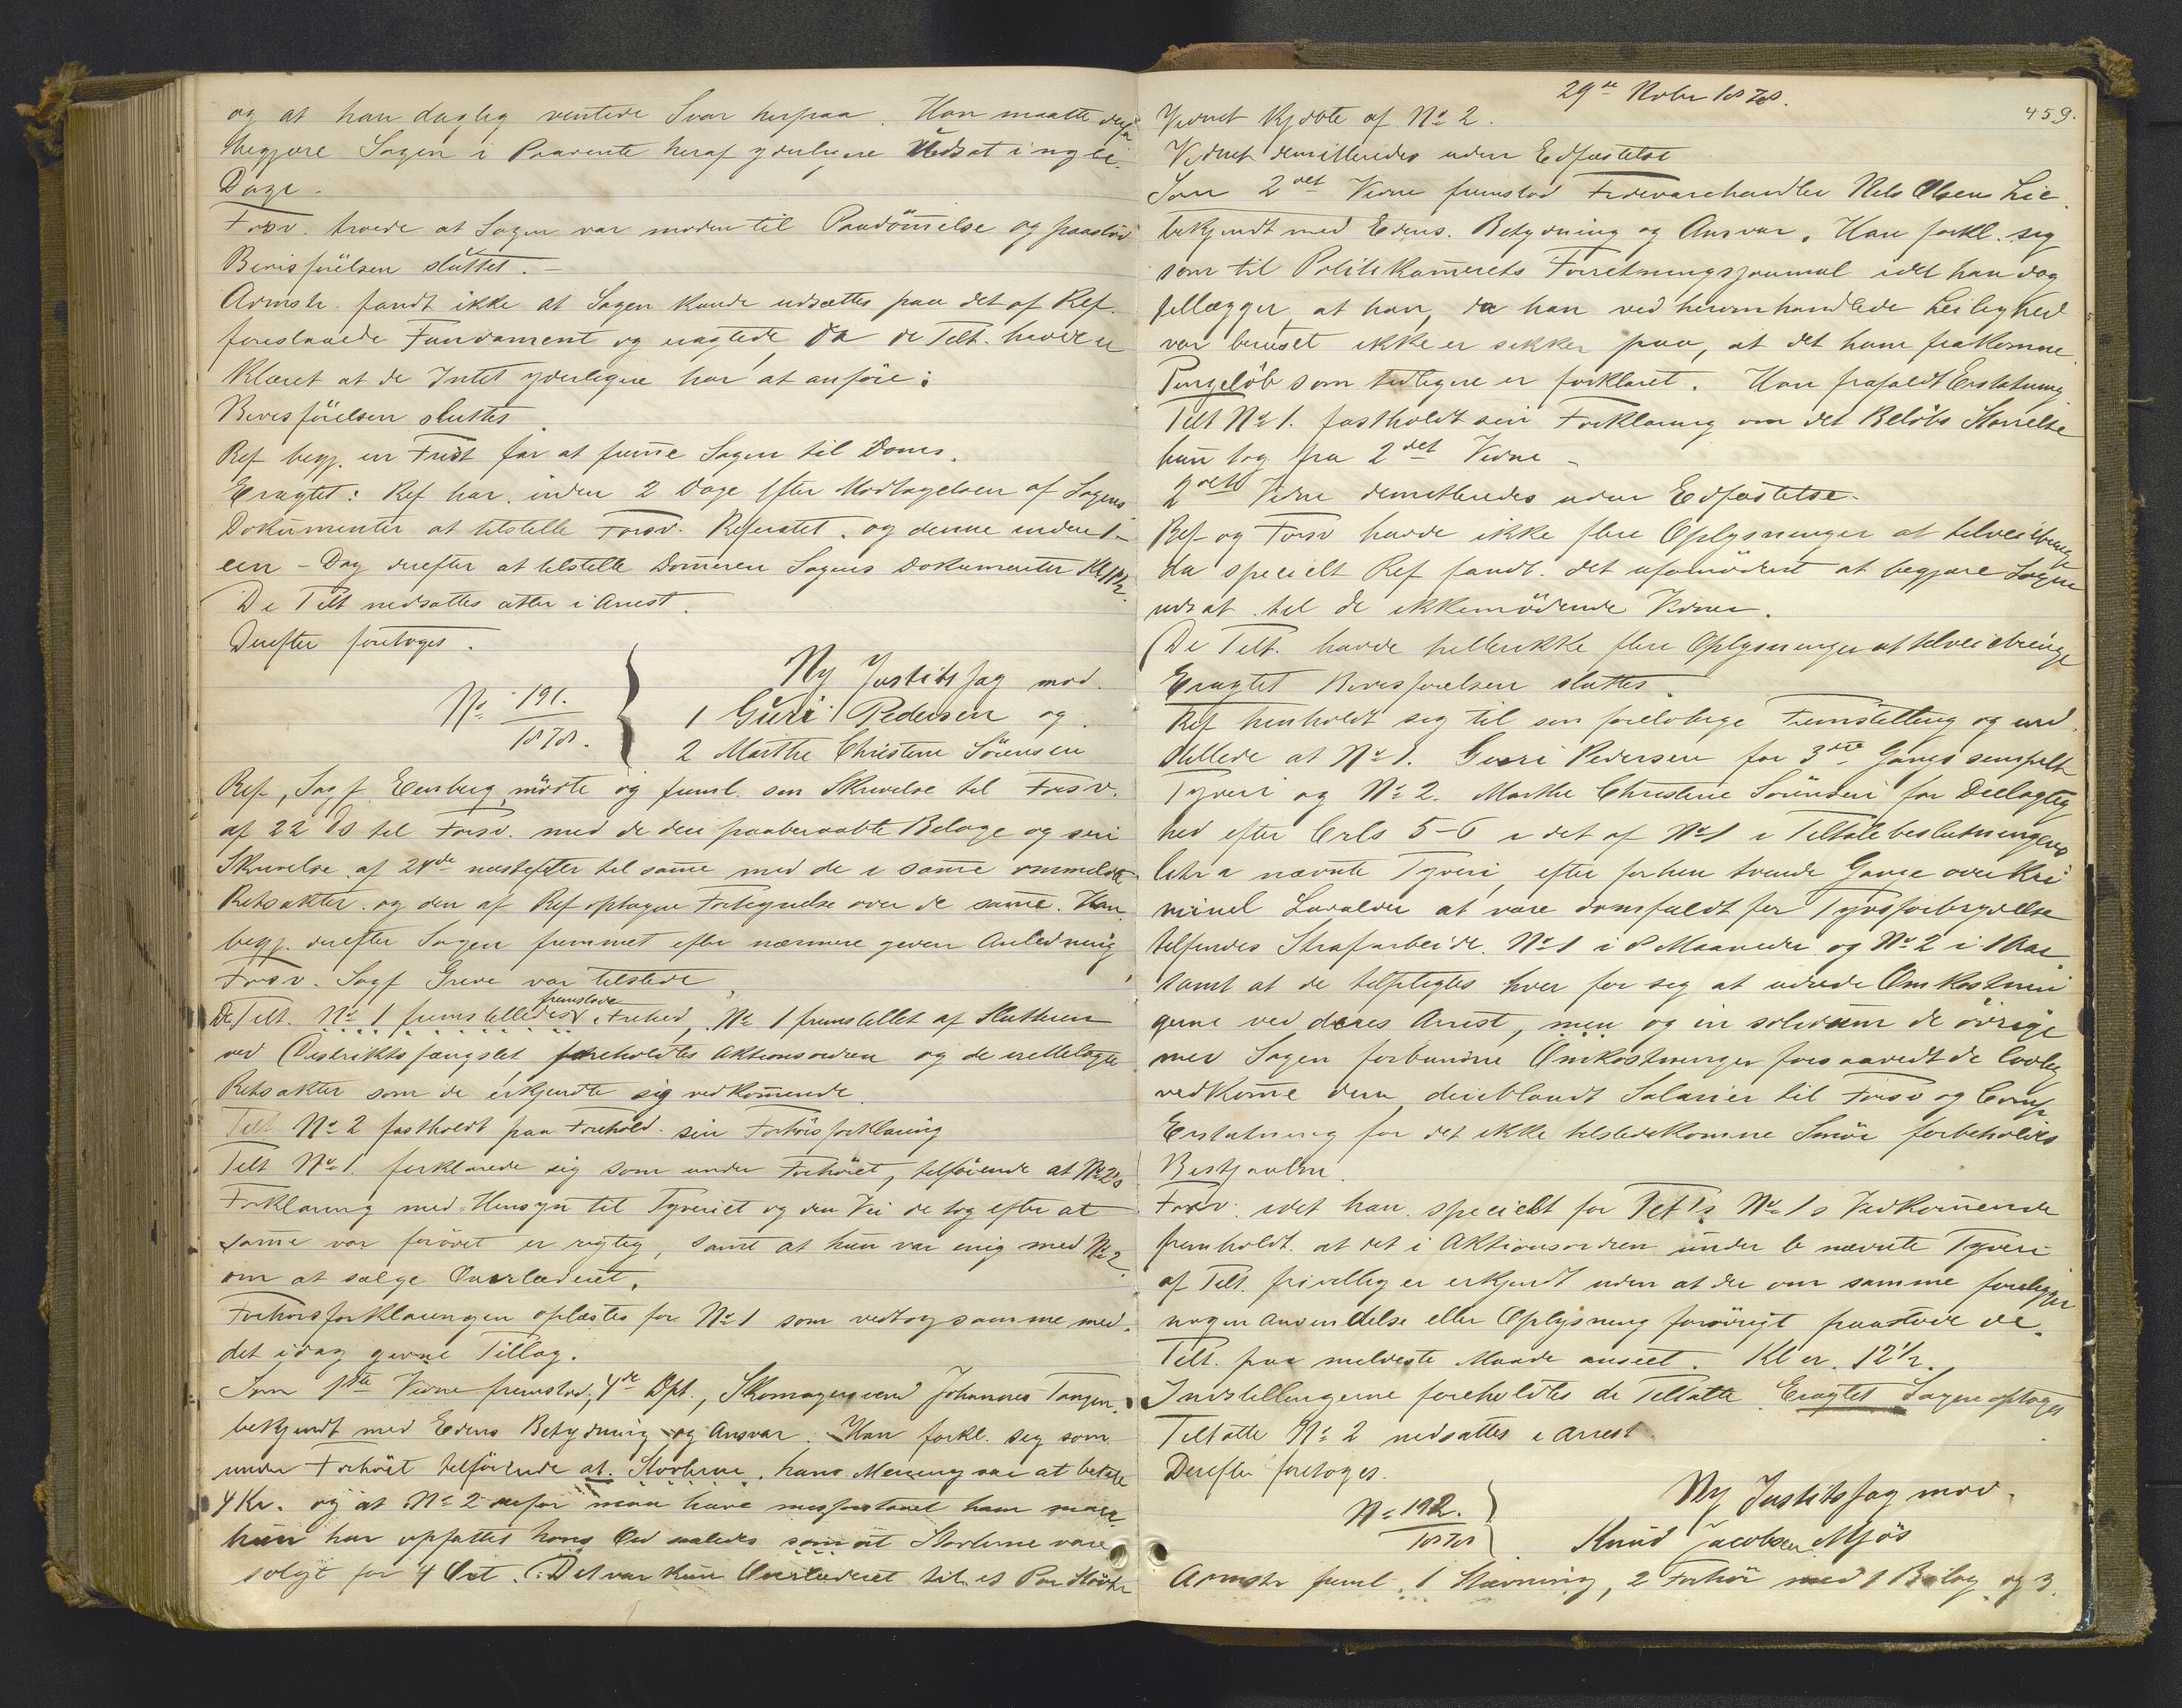 og at han daglig ventede Svar herpaa. Han maatte derfor
begjære Sagen i Paavente heraf yderligere Udsat i nogle
Dage.
Forsv. troede at Sagen var moden til Paadömelse og paastod
Bevisförelsen sluttet. –
Admstr. fandt ikke at Sagen kunde udsættes paa det af Ref.
foreslaaede Fundament og eragtede, da de Tilt. havde er
klæret at de Intet yderligere har at anföre:
Bevisförelsen sluttes
Ref begj. en Frist for at fremme Sagen til Doms.
Eragtet: Ref har inden 2 Dage efter Modtagelsen af Sagens
Dokumenter at tilstille Forsv. Referatet. og denne inden 1 –
een – Dag derefter at tilstille Domeren Sagens Dokumenter
De Tilt nedsattes atter i Arrest.
Derefter foretoges.
No 191. / 1878. Ny Justitssag mod.
1 Guri Pedersen og
2 Marthe Christine Sörensen
Ref, Sagf. Eensberg mödte og freml. sin Skrivelse til Forsv.
af 22 ds til Forsv. med de deri paaberaabte Bilage og sin
Skrivelse af 24de næstefter til same med de i same ommeldte
Retsakter og den af Ref optagne Fortegnelse over de same. Han
begj. derefter Sagen fremmet efter nærmere given Anledning
Forsv. Sagf Greve var tilstede
De Tilt. No 1 fremstilledes fremstode i Frihed, No 1 fremstillet af Slutteren
ved Distriktsfængslet foreholdtes Aktionsordren og de irettelagte
Retsakter som de erkjendte sig vedkomende.
Tilt No 2 fastholdt paa Forehold. sin Forhörsforklaring
Tilt No 1. forklarede sig som under Forhöret, tilföiende at No 2s
Forklaring med Hensyn til Tyveriet og den Vei de tog efter at
same var forövet er rigtig, samt at hun var enig med No 2
om at sælge Overlæderet.
Forhörsforklaringen oplæstes for No 1 som vedtog samme med
det idag givne Tillæg.
Som 1ste Vidne fremstod, 4de Dpt., Skomagersvend Johannes Tangen,
bekjendt med Edens Betydning og Ansvar. Han forkl. sig som
under Forhöret tilföiende at. Stövlerne. hans Mening var at betale
4 Kr. og at No 2 derfor maa have misforstaaet ham naar
hun har opfattet hans Ord saaledes som at Stövlerne vare
solgt for 4 Ort. Det var kun Overlæderet til et Par Stövler
29de Novbr 1878.
459.
Vidnet kjöbte af No 2.
Vidnet demitteredes uden Edfæstelse
Som 2det Vidne fremstod Fedevarehandler Nels Olsen Lie.
bekjendt med Edens. Betydning og Ansvar. Han forkl. sig
som til Politikamerets Forretningsjournal idet han dog
tillægger, at han, da han ved heromhandlede Leilighed
var beruset ikke er sikker paa, at det ham frakomne
Pengelöb som tidligere er forklaret. Han frafaldt Erstatning
Tilt No 1. fastholdt sin Forklaring om det Belöbs Störrelse
hun tog fra 2det Vidne –
2det Vidne demitteredes uden Edfæstelse.
Ref og Forsv havde ikke flere Oplysninger at tilveiebringe
da specielt Ref fandt. det ufornödent at begjære Sagen
udsat til de ikkemödende Vidner.
De Tilt. havde hellerikke flere Oplysninger at tilveiebringe
Eragtet Bevisforelsen sluttes.
Ref henholdt sig til sin forelobige Fremstilling og ind
stillede at No 1. Guri Pedersen for 3die Gangs simpelt
Tyveri og No 2. Marthe Christine Sörensen for Delagtig
hed efter Crls 5-6 i det af No 1 i Tiltalebeslutningens
litr a nævnte Tyveri, efter forhen tvende Gange over Kri
minel Lavalder at være domfældt for Tyvsforbrydelse
tilfindes Strafarbeide. No 1 i 8 Maaneder og No 2 i 1 Aar
samt at de tilpligtes hver for sig at udrede Omkostnin
gerne ved deres Arrest, men og in solidum de övrige
med Sagen forbundne Omkostninger forsaavidt de lovlig
vedkome dem, deriblandt Salarier til Forsv og
Erstatning for det ikke tilstedekomne Smör forbeholdes
Bestjaalne.
Forsv. idet han. specielt for No 1s Vedkomende
fremholdt. at det i Aktionsordren under b nævnte Tyveri
af Tilt. frivillig er erkjendt uden at der om samme foreligger
nogen Anmeldelse eller Oplysning forövrigt paastode de
Tilt. paa mildeste Maade anseet. Kl er. 12½.
Indstillingerne foreholdtes de Tiltalte Eragtet Sagen optages
Tiltalte No 2 nedsattes i Arrest.
Derefter foretoges.
No 192. / 1878 Ny Justitssag mod.
Knud Jacobsen Mjös
Admstr freml. 1 Stævning, 2 Forhör med 1 Bilag og 3.